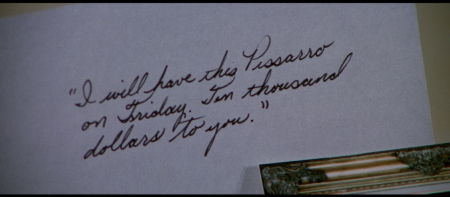 "I will have this Pissarro
on Friday. Ten thousand
dollars to you."